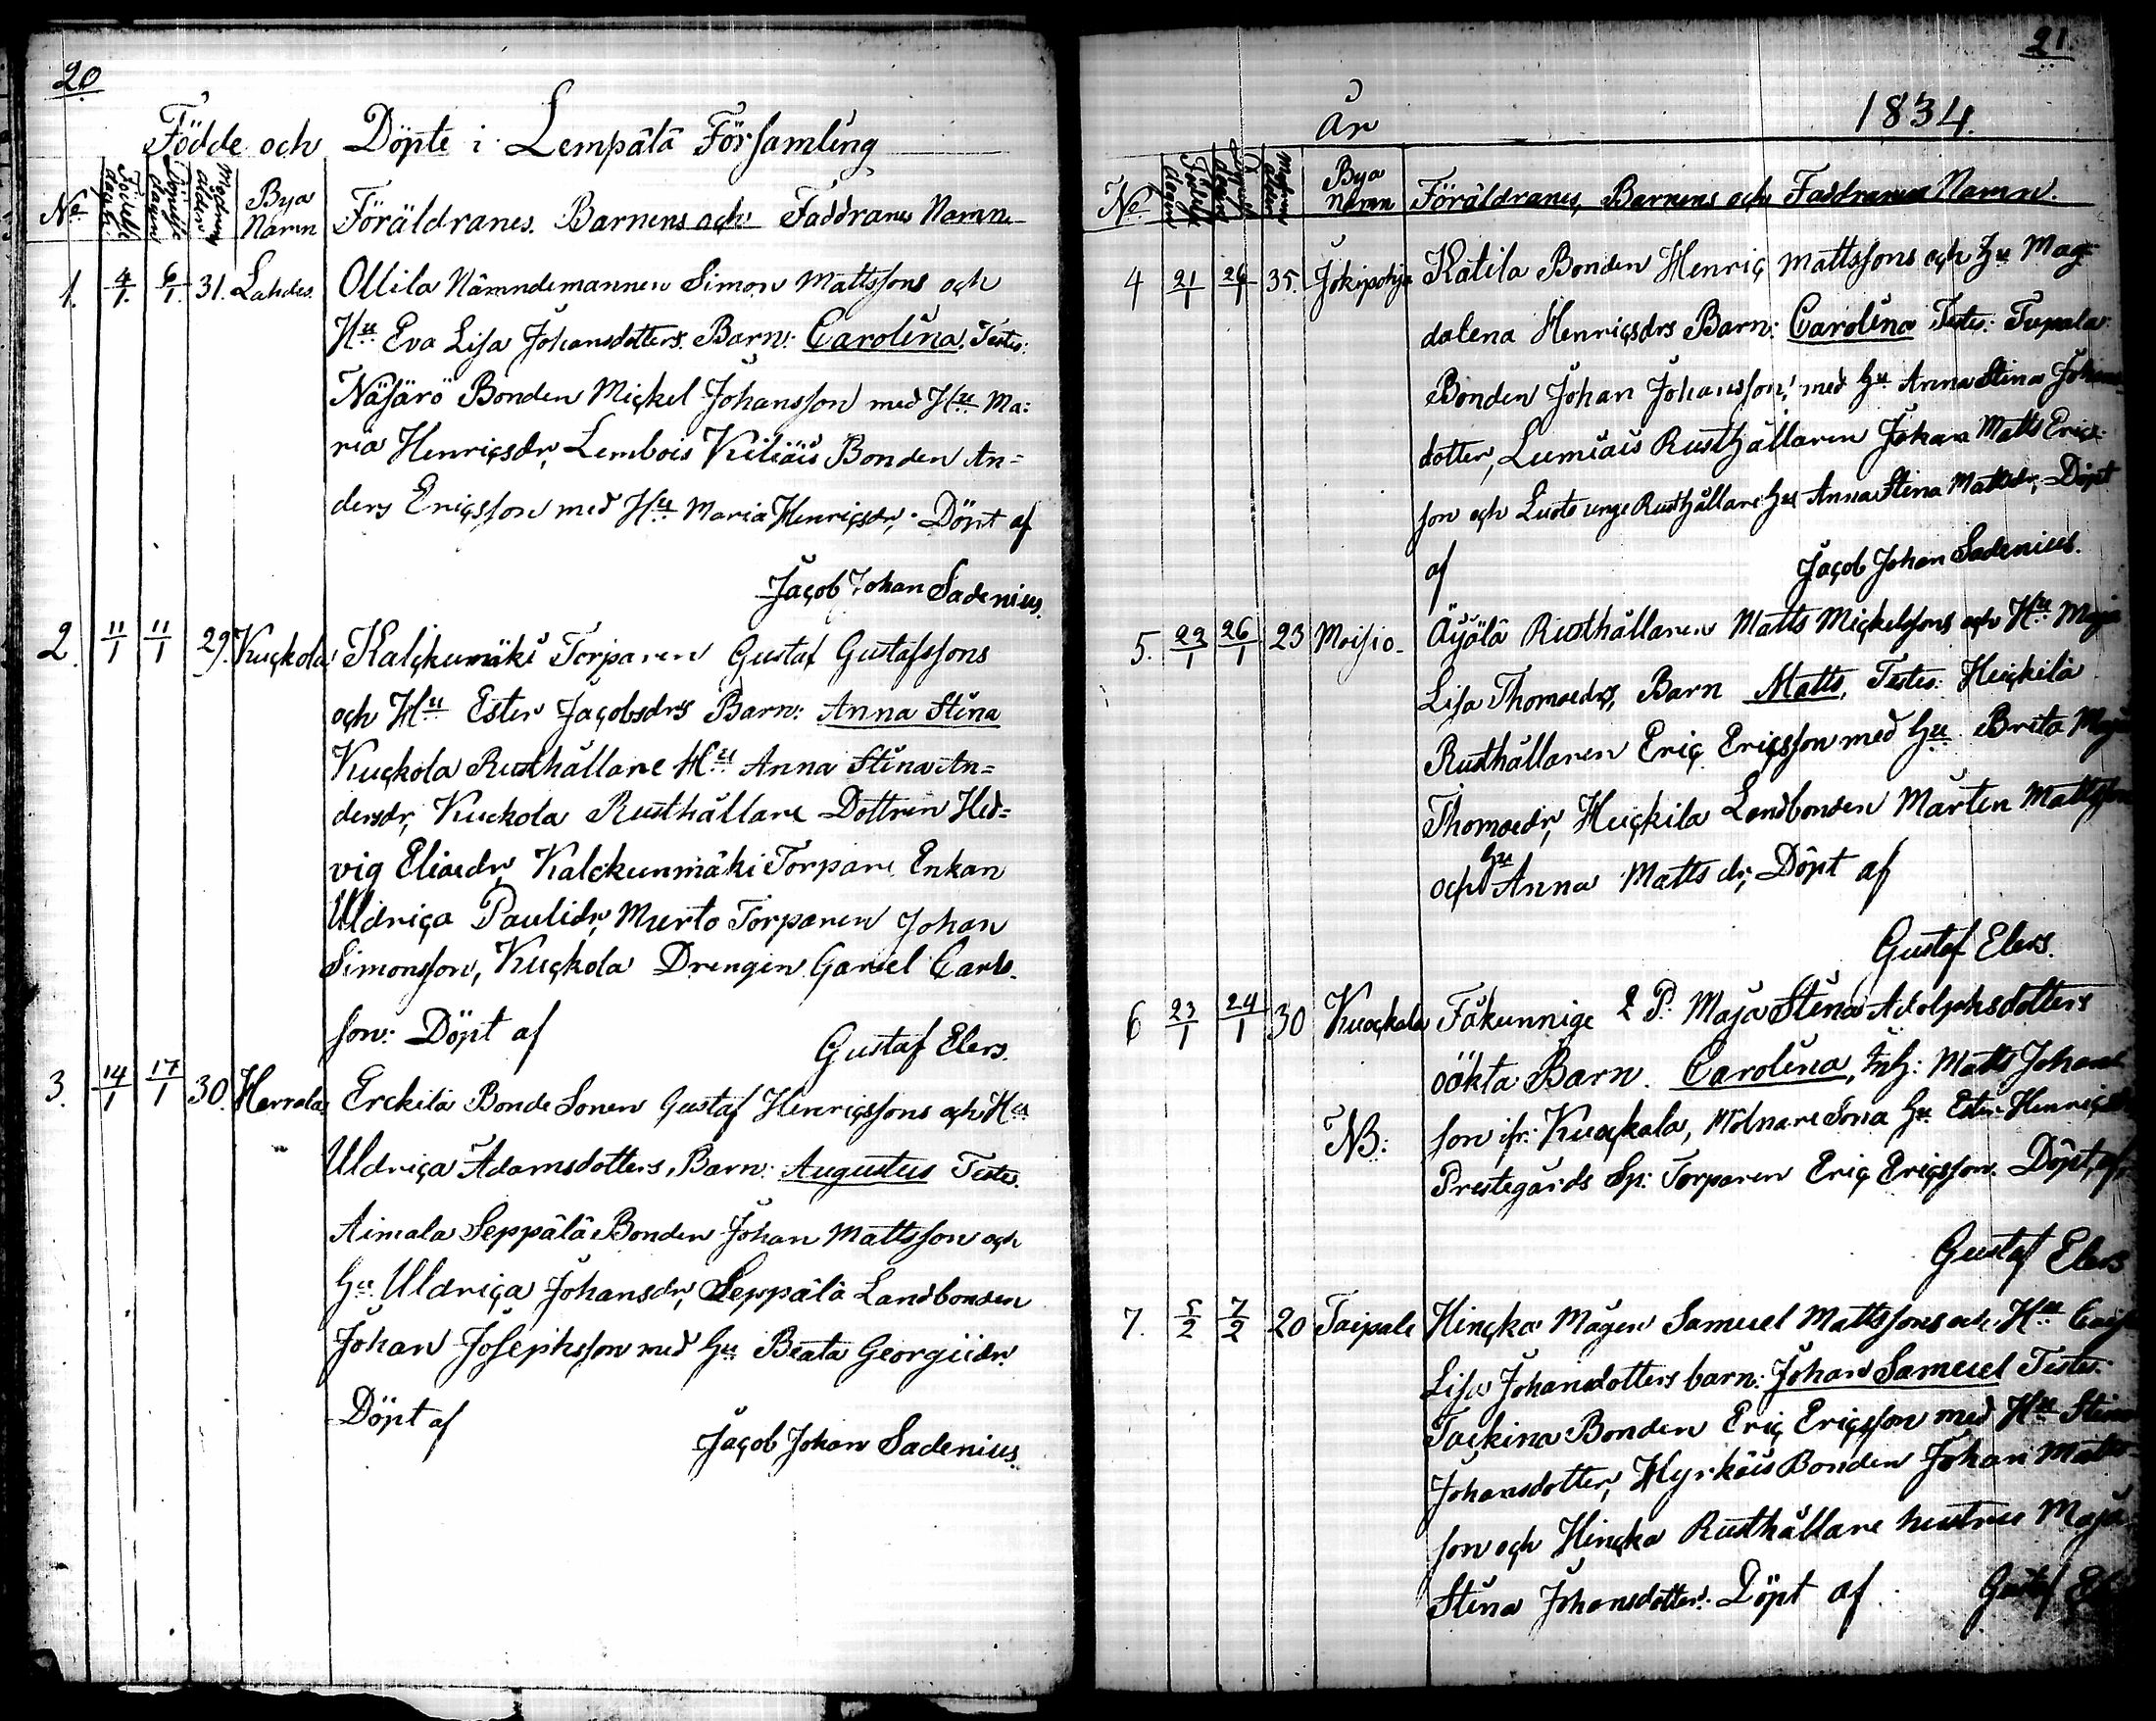 20
Födde och Döpte i Lempälä Församling
No. Födelse dagen Döpelse dagen Modrens ålder Bya Namn Föräldranes, Barnens och Faddranes Namn
1. 4/1. 6/1. 31. Lahdes. Ollila Nämndemannen Simon Mattssons och
Hu Eva Lisa Johansdotters Barn: Carolina. Testes:
Näsärö Bonden Mickel Johansson med Hu Ma:
ria Henricsdr, Lembois Kiliäis Bonden An=
ders Ericsson med Hu Maria Henricsdr. Döpt af
Jacob Johan Sadenius.
2. 11/1 11/1 29. Kuckola Kalckunmäki Torparen Gustaf Gustafssons
och Hu Ester Jacobsdrs Barn: Anna Stina
Kuckola Rusthållare Hu Anna Stina An=
dersdr, Kuckola Rusthållare Dottren Hed=
vig Eliaedr, Kalckunmäki Torpare Enkan
Uldrica Paulidr, Murto Torparen Johan
Simonsson, Kuckola Drengen Gariel Carls
son: Döpt af Gustaf Elers.
3. 14/1 17/1 30. Herrala Erckilä Bonde Sonen Gustaf Henricssons och Hu
Uldrica Adamsdotters, Barn: Augustus Testes.
Aimala Seppälä Bonden Johan Mattsson och
Hu Uldrica Johansdr, Seppälä Landbonden
Johan Josephsson med Hu Beata Georgiidr.
Döpt af
Jacob Johan Sadenius.
21
År 1834.
No. Födelse dagen Döpelse dagen Modrens ålder Bya Namn Föräldranes, Barnens och Faddranes Namn.
4 21/1 26/1 35. Jokipohja Katila Bonden Henric Mattssons och Hu Mag=
dalena Henricsdrs Barn: Carolina Testes: Tupala
Bonden Johan Johansson, med Hu Anna Stina Johans
dotter, Lumiais Rusthållaren Johan Matts Erics
son och Luoto unge Rusthållare Hu Anna Stina Mattsdr, Döpt
af Jacob Johan Sadenius.
5. 23/1 26/1 23 Moisio. Äijälä Rusthållaren Matts Mickelsons och Hu Maja
Lisa Thomaedrs, Barn Matts, Testes: Heickilä
Rusthållaren Eric Ericsson med Hu Brita Maja
Thomaedr, Heickilä Landbonden Mårten Mattsson
och Hu Anna Matts dr, Döpt af
Gustaf Elers.
6 23/1 24/1 30 Kuockala Fåkunnige P: Maja Stina Adolphsdotters
oäkta Barn. Carolina, Inh: Matts Johans
NB: son ifr: Kuockala, Mölnare Sona Hu Ester Henricsdr
Prestegårds Sp: Torparen Eric Ericsson. Döpt af
Gustaf Elers
7. 5/2 7/2 20 Taipale Hincka Mågen Samuel Mattssons och Hu Caisa
Lisa Johansdotters barn: Johan Samuel Testes:
Tackina Bonden Eric Ericsson med Hu Stina
Johansdotter, Hyrkäis Bonden Johan Matts
son och Hincka Rusthållare hustru Maja
Stina Johansdotter. Döpt af Gustaf